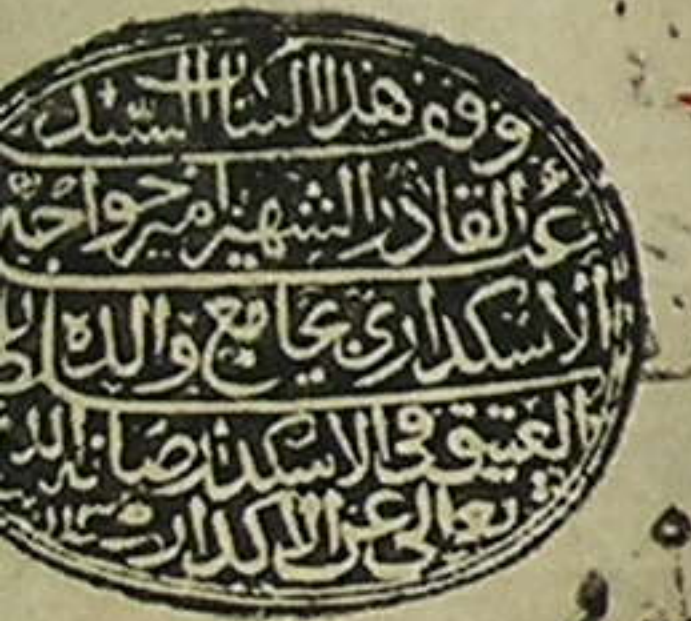 وقف هذا الكتاب السيد
عبد القادر الشهير امير خواجه
الاسكداري بجامع والده سلطان
العتيق في الاسكدار صانه الله
تعالى عن الاكدار